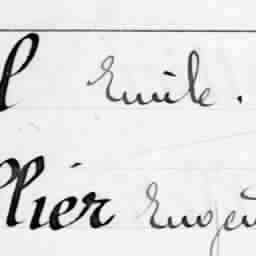 l Emile.
llier Eugèn